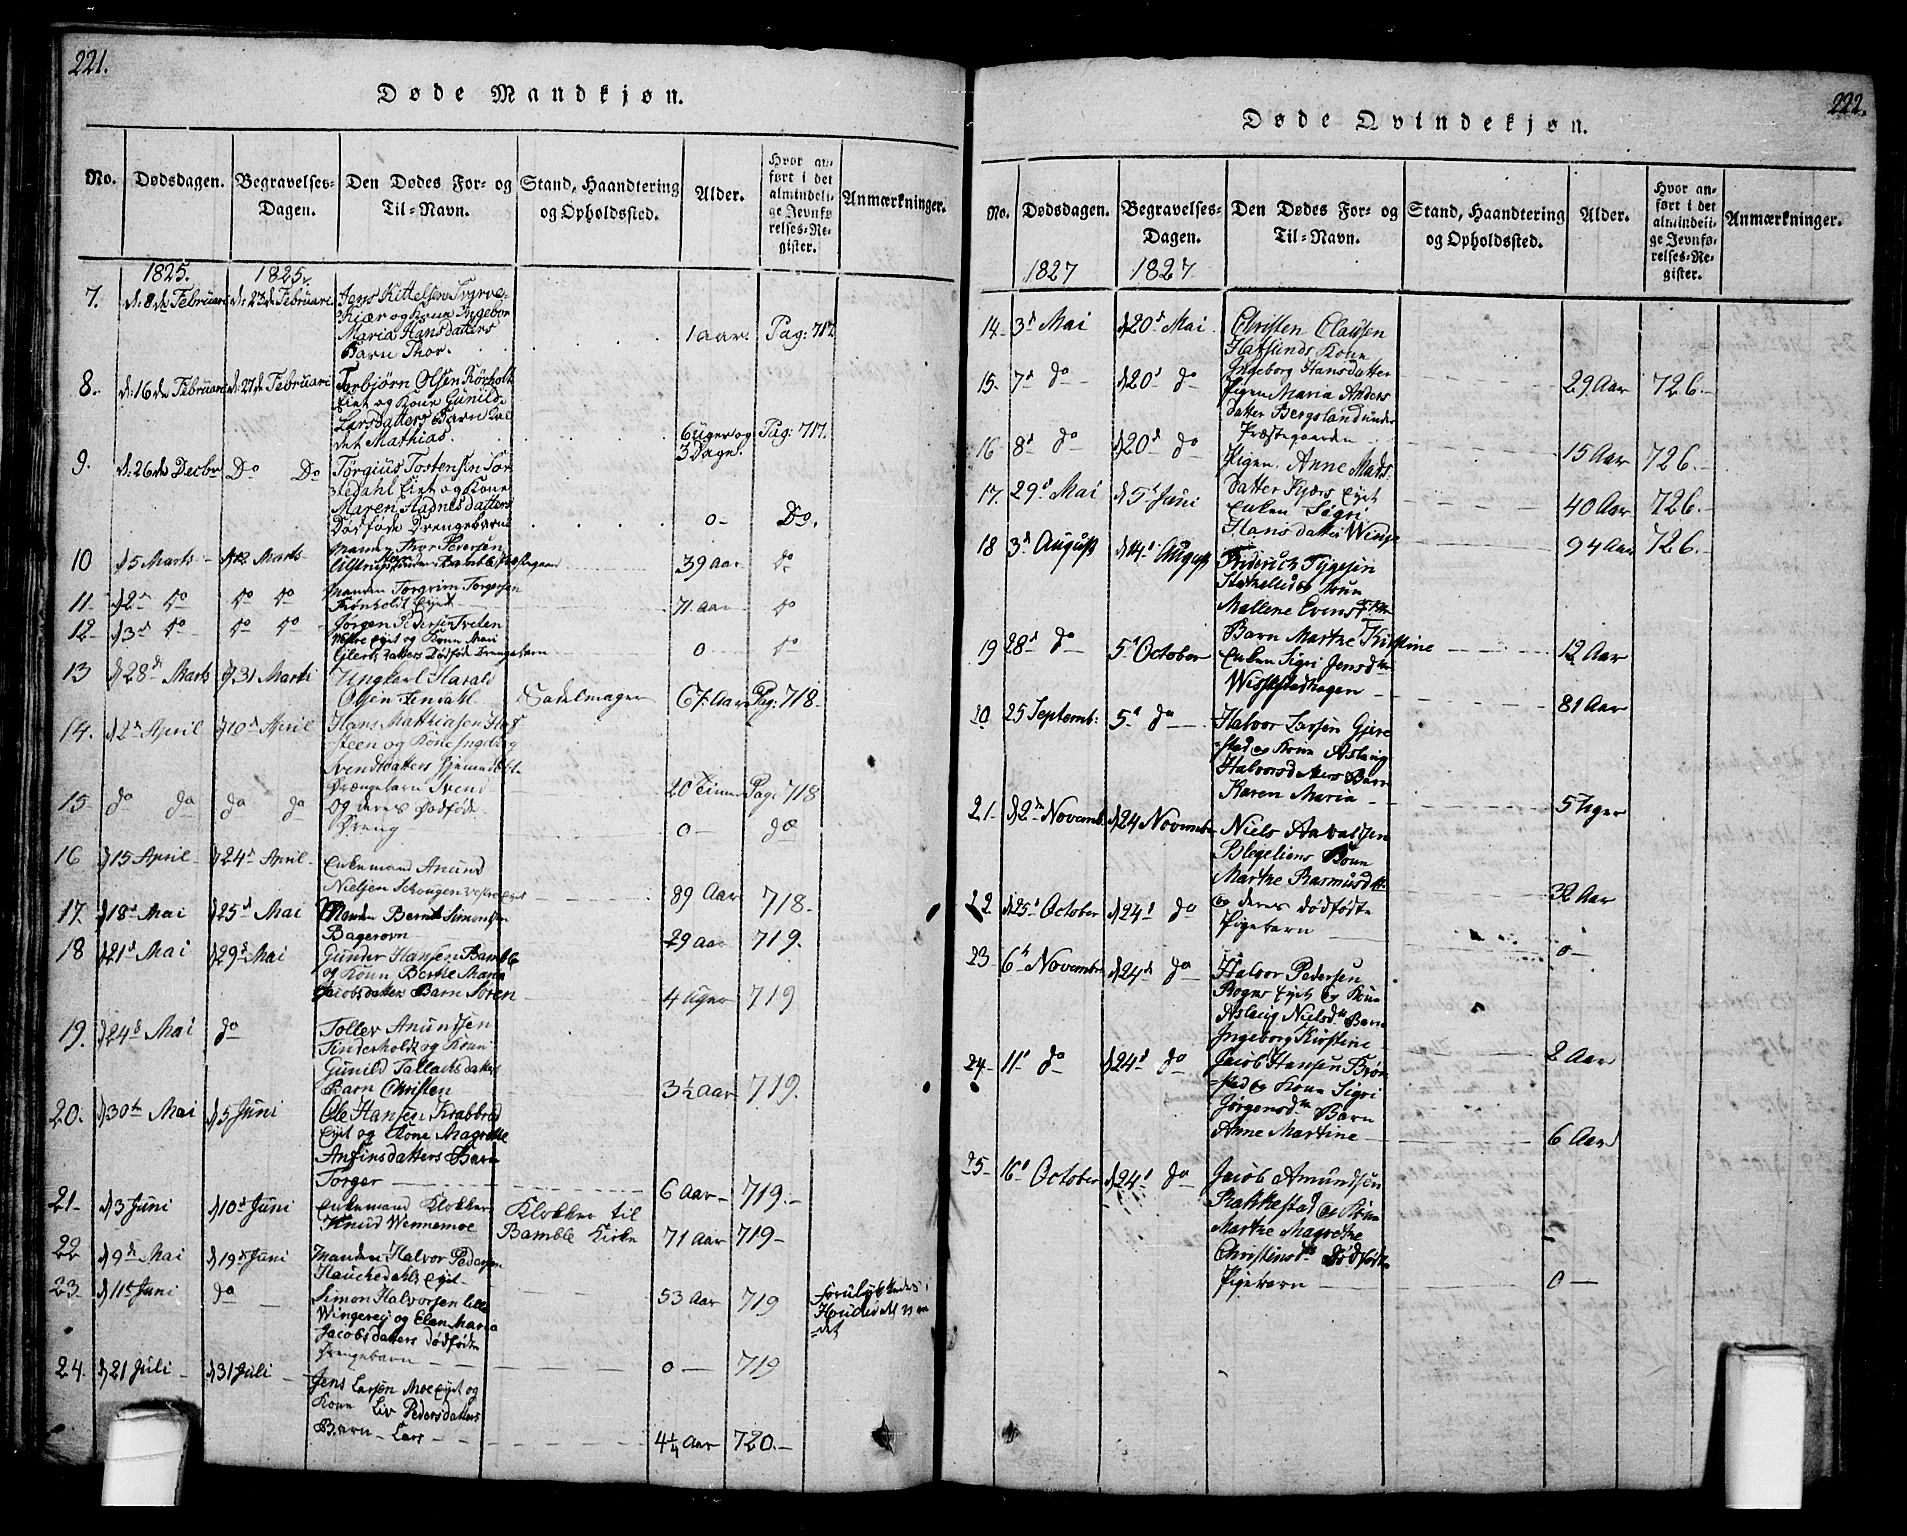 221.
Døde Mandkjøn.
No. Dødsdagen. Begravelses-Dagen. Den Dødes For- og Til-Navn. Stand, Haandtering og Opholdssted. Alder. Hvor anført i det almindelige Jevnførelses-Register. Anmærkninger.
1825. 1825.
7. d: 8de Februari d: 27de Februari Jens Kittelsen
Kiær og Kone Ingebor
Maria Hansdatters
Barn Thor. 1 aar. Pag: 717
8. d: 16de Februari d: 27de Februari Torbjørn Olsen Rörholt
Eiet og Kone Gunilde
Larsdatters Barn
det Mathias. 6 Uger og 3 Dage. Pag: 717.
9. d: 26de Decbr Do Do Tørgius Tostensen
Eiet og Kone
Maren Aadnesdatters
Dödföde Drengebarn 0- Do.
10 d 5 Marts - d 12 Marts Manden Thor Pedersen
39 Aar do
11- d 2n do do do Manden Torgrim Torgersen
Trönholt Eyet 71 Aar do
12- d 3d do do do Jörgen Pedersen Tveten
Vestre Eyet og Kone Mari
Eilerts Datters Dödföde Drengebarn 0 do
13 d 28de Marts d 31 Marti Ungkarl Harald
Olsen Sadelmager 67 Aar Pag: 718.
14. d 2n April d 10n April Hans Mathiasen
steen og Kone Ingeborg
Svendsdatters hjemmedöbte
Drængebarn Svend 20 Timer Pag: 718
15- do do do do og deres dödföde
Dreng 0 - do
16 d 15 April - d 24d April Enkemand Anund
Nielsen Skougen vestre Eiet 89 Aar 718.
17. d 18d Mai d 25d Mai Manden Bernt Simonsen
Bagerovn 29 Aar 719.
18 d 21d Mai d 29d Mai Gunder Hansen Bamble
og Kone Berthe Maria
Jacobsdatters Barn Sören 4 Uger 719
19. d 24d Mai do Toller Anundsen
Tinderholt og Kone
Gunild Tallachsdatters
Barn Christen 3½ Aar 719.
20. d 30te Mai d 5 Juni Ole Hansen Krabberöd
Eyet og Kone Magrethe
Anfinsdatters Barn
Torger 6 Aar - 719.-
21- d 3 Juni d 10d Juni Enkemand Klokker
Knud Wennemoe Klokker til
Bamble Kirke 71 Aar 719-
22 d 9d Mai d 19d Juni Manden Halvor Pedersen
Hauchedahls Eyet 53 Aar 719 Forulykkedes i
23. d 11te Juni do Simon Halvorsen lille
Wingerei og Elen Maria
Jacobsdatters dödfödte
Drengebarn 0 - 719
24. d 21 Juli - d 31 Juli - Jens Larsen Moe Eyet og
Kone Liv Pedersdatters
Barn - Lars - 4¼ Aar 720.-
222.
Døde Qvindekjøn.
No. Dødsdagen. Begravelses-Dagen. Den Dødes For- og Til-Navn. Stand, Haandtering og Opholdssted. Alder. Hvor anført i det almindelige Jevnførelses-Register. Anmærkninger.
1827 1827
14- 3d Mai d 20d Mai Christen Clausen
Hafsunds Kone
Ingeborg Hansdatter 29 Aar 726.
15. 7d do d 20d do Pigen Maria Anders
datter Bergsland under
Præstegaarden 15 Aar 726.
16 8d do d 20d do Pigen Anne Mads
datter Kjærs Eyet 40 Aar 726.
17. 29d Mai d 5d Juni Enken Sigri
Hansdatter 94 Aar 726.
18 3d August d 14d August Friderich Tygesen
Stathelle og Kone
Mallene Evensdtr
Barn Marthe Kirstine 12 Aar
19 28d do 5d October Enken Sigri Jensdtr
81 Aar
20 25 Septemb: 5d do Halvor Larsen Gjere
stad og Kone Aslaug
Halvorsdatters Barn
Karen Maria 5 Uger
21- d 2n Novemb d 24 Novembr Niels Aavaldsen
Blegeliens Kone
Marthe Rasmusdtr 32 Aar
22. d 25d October d 24d do og deres dödfödte
Pigebarn 0 -
23 6te Novembr d 24d do Halvor Pedersen
Rognes Eyet og Kone
Aslaug Nielsdtr Barn
Ingeborg Kirstine 2 Aar
24- 11d do d 24d do Jacob Hansen Brön
stad og Kone Sigri
Jörgensdtr Barn
Anne Martine 6 Aar
25- 16d October d 24d do Jacob Amundsen
Rakkestad og Kone
Marthe Magrethe
Christensdtr Dödfödte
Pigebarn 0 -